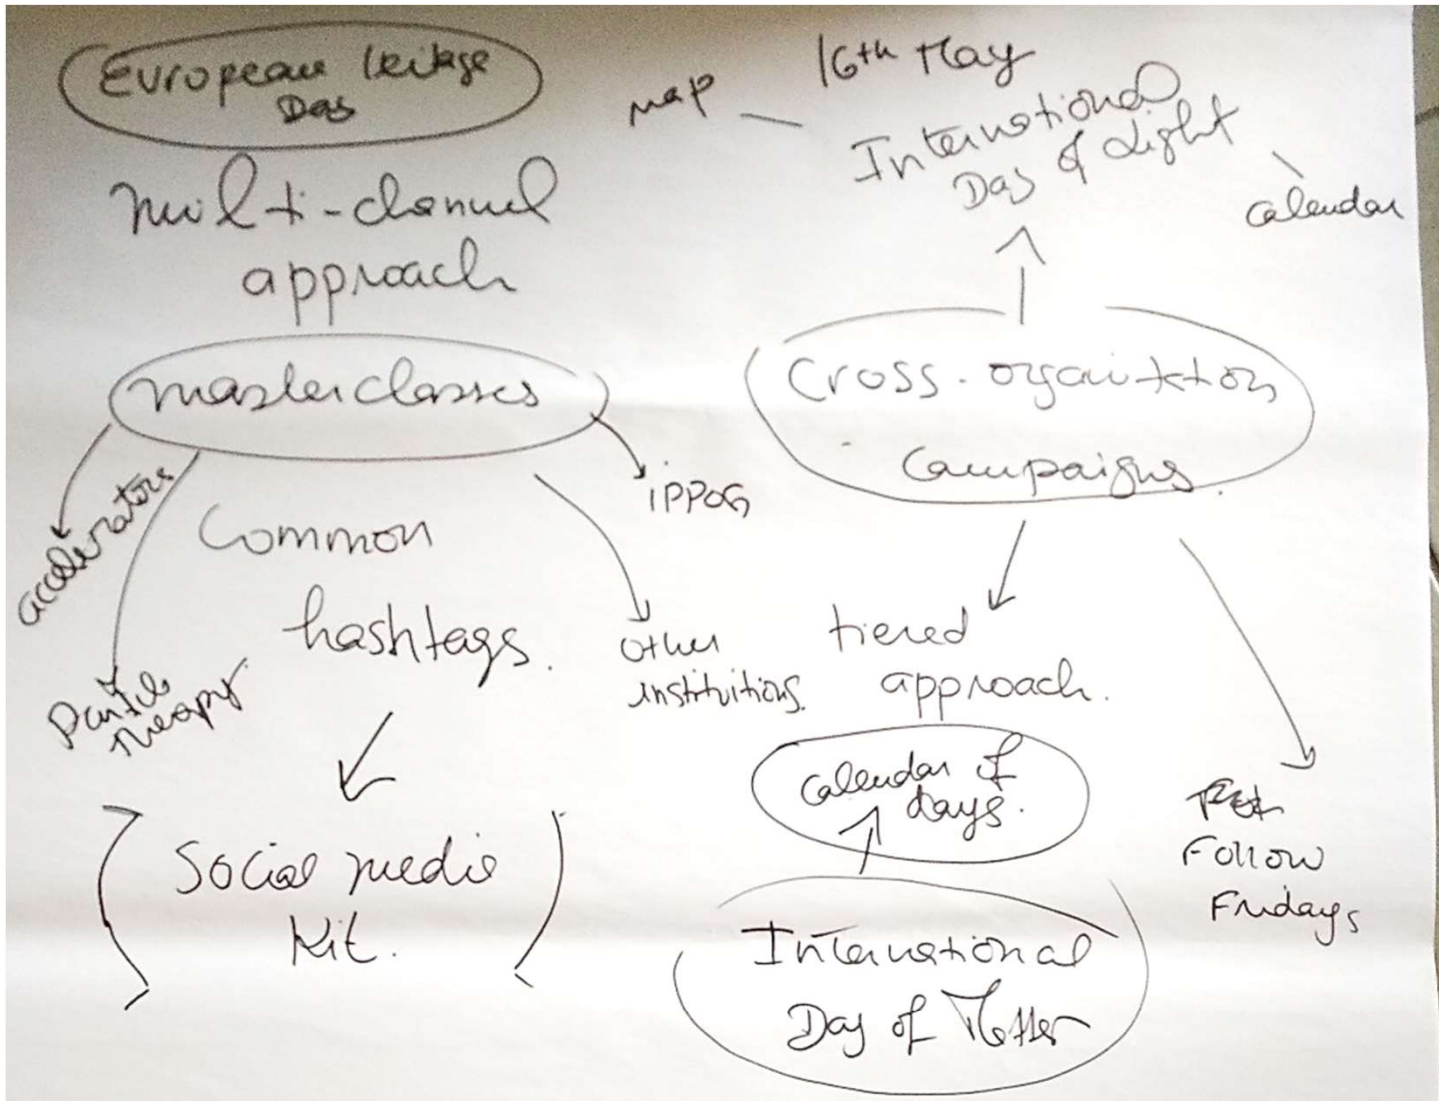 European
Day
Multi-channel
approach
masterclasses
accelerators
Particle
therapy
IPPOG
Other
instituitions
Common
hashtags.
Social media
Kit.
16th May
International
Day of Light
map
calendar
Cross-organization
campaigns.
tiered
approach.
Calendar of
days.
International
Day of Matter
Follow
Fridays